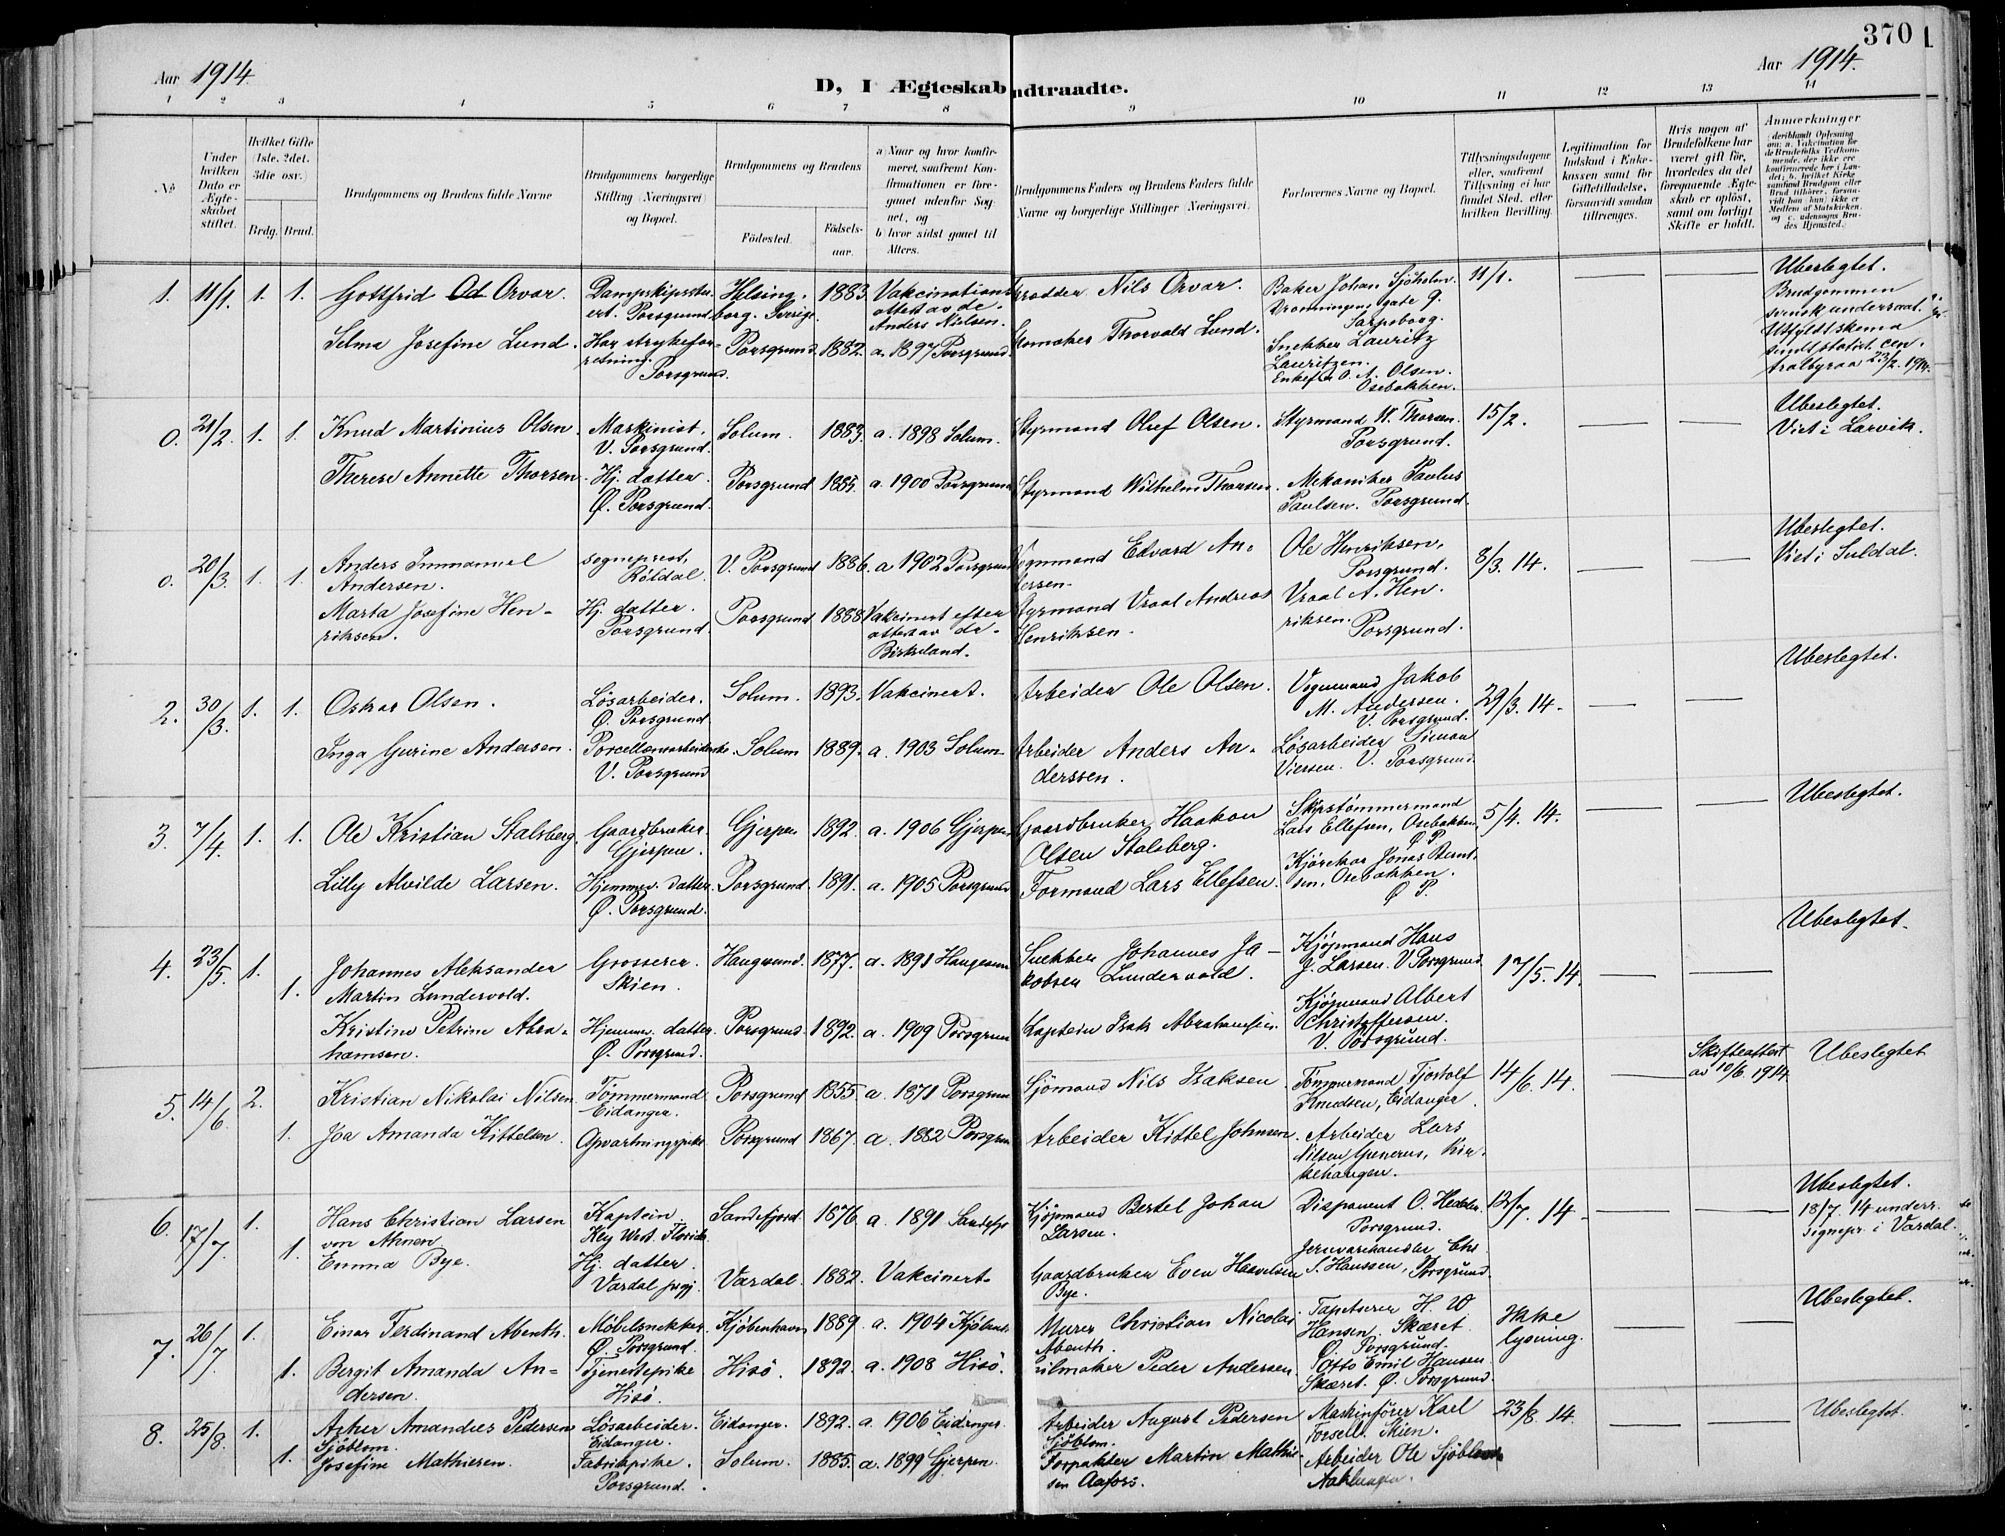 370
Aar 1914.
Aar 1914.
D, I Ægteskab indtraadte.
1 2 3 4 5 6 7 8 9 10 11 12 13 14
No
Under hvilken Dato er Ægteskabet stiftet.
Hvilket Gifte (1ste, 2det, 3die osv.)
Brdg. Brud.
Brudgommens og Brudens fulde Navne
Brudgommens borgerlige Stilling (Næringsvei) og Bopæl.
Brudgommens og Brudens
Fødested.
Fødselsaar.
a) Naar og hvor konfirmeret, saafremt Konfirmationen er foregaaet udenfor Sognet, og
b) hvor sidst gaaet til Alters.
Brudgommens Faders og Brudens Faders fulde Navne og borgerlige Stillinger (Næringsvei)
Forlovernes Navne og Bopæl.
Tillysningsdagene eller, saafremt Tillysning ei har fundet Sted, efter hvilken Bevilling.
Legitimation for Indskud i Enkekassen samt for Giftetilladelse, forsaavidt saadan tiltrænges.
Hvis nogen af Brudefolkene har været gift før, hvorledes da det foregaaende Ægteskab er opløst, samt om lovligt Skifte er holdt.
Anmerkninger
1. 11/1. 1. 1. Gottfrid Od Orvar. Dampskipsstuert. Porsgrund. Helsingborg. Sverige. 1883. Vakcinationsattest av de Anders Nielsen. Nils Orvar. Baker Johan Sjöholm. Dronningens gate 9. Sarpsborg. 11/1. Ubeslegtet. Brudgommen svensk undersaat.
Selma Josefine Lund. Har strykeforretning. Porsgrund. Porsgrund. 1882. a. 1897 Porsgrund. Thorvald Lund. Snekker Lauritz Lauritzen. Enkefru O. A. Olsen. Osebakken. Utfyldt skema sendt statist. centralbyraa 23/2. 1914.
0. 21/2. 1. 1. Knud Martinius Olsen. Maskinist. V. Porsgrund. Solum. 1883. a. 1898 Solum. Styrmand Oluf Olsen. Styrmand W. Thorsen. Porsgrund. 15/2. Ubeslegtet. Viet i Larvik.
Therese Annette Thorsen. Hj. datter. Ø. Porsgrund. Porsgrund 1885. a. 1900 Porsgrund Styrmand Wilhelm Thorsen. Mekaniker Paulus Paulsen. Porsgrund.
0. 20/3. 1. 1. Anders Immanuel Andersen. sogneprest, Röldal. V. Porsgrund 1886. a 1902 Porsgrund Edvard Andersen. Ole Henriksen, Porsgrund. 8/3. 14. Ubeslegtet. Viet i Suldal.
Marta Josefine Henriksen. Hj. datter. Porsgrund. Porsgrund 1888 Vakcinert efter attest av de Birkeland. Styrmand Vraal Andreas Henriksen. Vraal A. Henriksen. Porsgrund.
2. 30/3. 1. 1. Oskar Olsen. Løsarbeider. Ø. Porsgrund Solum. 1893. Vakcinert. Arbeider Ole Olsen. Vognmand Jakob M. Andersen. V. Porsgrund. 29/3. 14. Ubeslegtet.
Inga Gurine Andersen. Porcellænsarbeiderske V. Porsgrund Solum 1889. a. 1903 Solum. Arbeider Anders Anderssen. Løsarbeider Simon Viersen. V. Porsgrund.
3. 7/4. 1. 1. Ole Kristian Stalsberg. Gaardbruker. Gjerpen. Gjerpen 1892. a. 1906 Gjerpen Gaardbruker Haakon Olsen Stalsberg. Skipstømmermand Lars Ellefsen, Osebakken, Ø P. 5/4. 14. Ubeslegtet.
Lilly Alvilde Larsen. Hjemmev. datter. Ø. Porsgrund. Porsgrund. 1891. a. 1905 Porsgrund Formand Lars Ellefsen. Kjørekar Jonas Berntsen, Osebakken. Ø P.
4. 23/5. 1. 1. Johannes Aleksander Martin Lundervold. Grosserer. Skien. Haugesund. 1877. a. 1891 Haugesund Snekker Johannes Jakobsen Lundervold. Kjøpmand Hans J. Larsen. V Porsgrund 17/5. 14. Ubeslegtet.
Kristine Petrine Abrahamsen. Hjemmev. datter. Ø. Porsgrund. Porsgrund. 1892. a. 1909 Porsgrund Kaptein Isak Abrahamsen. Kjøpmand Albert Christoffersen. V. Porsgrund.
5. 14/6. 2. 1. Kristian Nikolai Nilsen. Tømmermand Eidanger. Porsgrund 1855 a. 1871 Porsgrund Sjømand Nils Isaksen. Tømmermand Tjostolf Knudsen, Eidanger. 14/6. 14. Skifteattest av 10/6. 1914. Ubeslegtet
Joa Amanda Kittelsen. Opvartningspike. Porsgrund 1867. a. 1882 Porsgrund Arbeider Kittel Johnsen. Arbeider Lars Nilsen Gunerus, Kirkehaugen.
6. 17/7. 1. 1. Hans Christian Larsen von Ahnen Kaptein Key West. Florida Sandefjord 1876. a. 1891 Sandefj. Kjøpmand Bertel Johan Larsen. Disponent O. Porsgrund. 12/7. 14. Ubeslegtet. 18/7. 14 underr. sognepr. i Vardal.
Emma Bye. Hj. datter. Vardal prgj. Vardal. 1882. Vakcinert. Gaardbruker Even Haavelsen Bye. Jernvarehandler Chr. S. Hanssen, Porsgrund.
7. 26/7. 1. 1. Einar Ferdinand Abenth. Møbelsnekker. Ø. Porsgrund. Kjøbenhavn 1889. a. 1904 Kjøbenh. Murer Christian Nicolai Abenth. Tapetserer H. W. Hansen, Skæret Ø. Porsgrund. Ikke lysning. Ubeslegtet.
Bergit Amanda Andersen. Tjenestepike Hisö. Hisö. 1892. a. 1908 Hisö. Seilmaker Peder Andersen. Otto Emil Hansen Skæret. Ø. Porsgrund
8. 25/8. 1. 1. Asker Amandus Pedersen Sjöblom. Løsarbeider. Eidanger. Eidanger. 1892. a. 1906 Eidanger. Arbeider August Pedersen Sjöblom. Maskinfører Karl Torsell. Skien. 23/8. 14. Ubeslegtet.
Josefine Mathiesen. Fabrikpike. Porsgrund. Solum. 1885. a. 1899 Gjerpen. Forpakter Martin Mathisen Aafors. Arbeider Ole Sjöblom